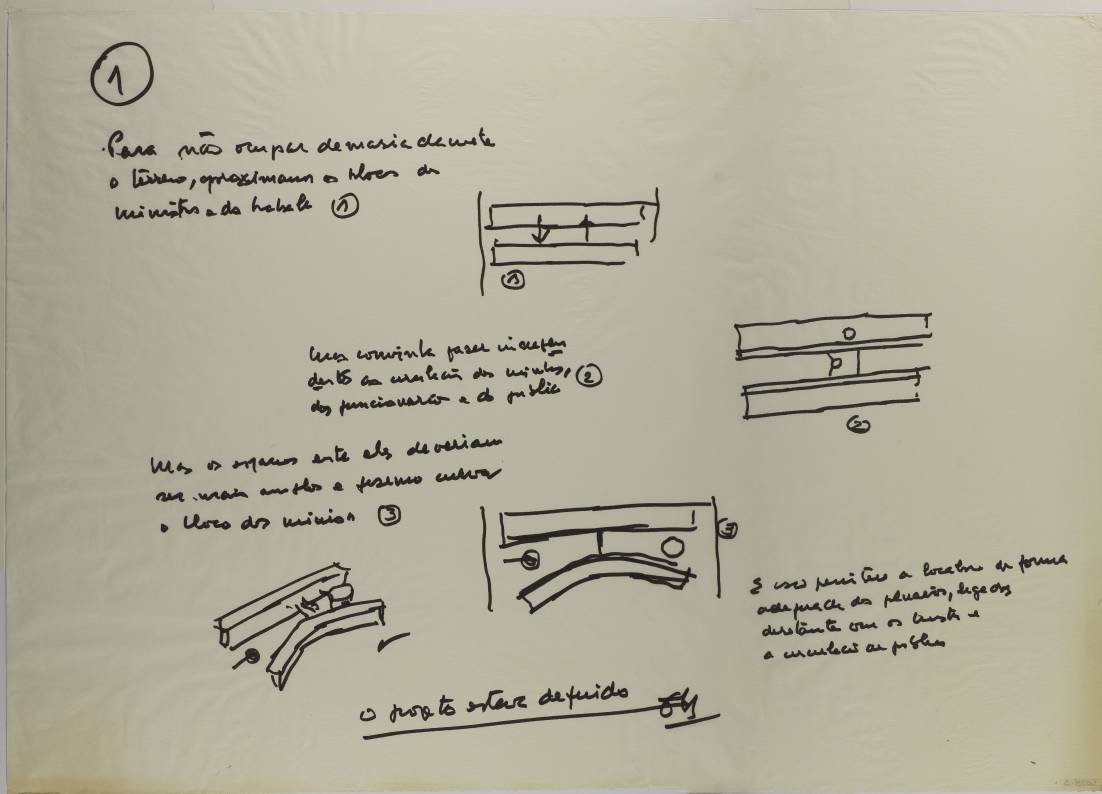 1
Para não ocupar demasiadamente
o terreno, aproximamos os blocos dos
ministros e do trabalho 1
1
Mas convinha fazer independente
a circulação dos ministros, 2
dos funcionarios e do público
2
Mas os espaços entre eles deveriam
ser mais amplos e fizemos curvar
o bloco dos ministros 3
3
E isso permitiu a localizar de forma
adequada os plenarios, ligados
diretamente com os
a circulação do público
O projeto estava definido